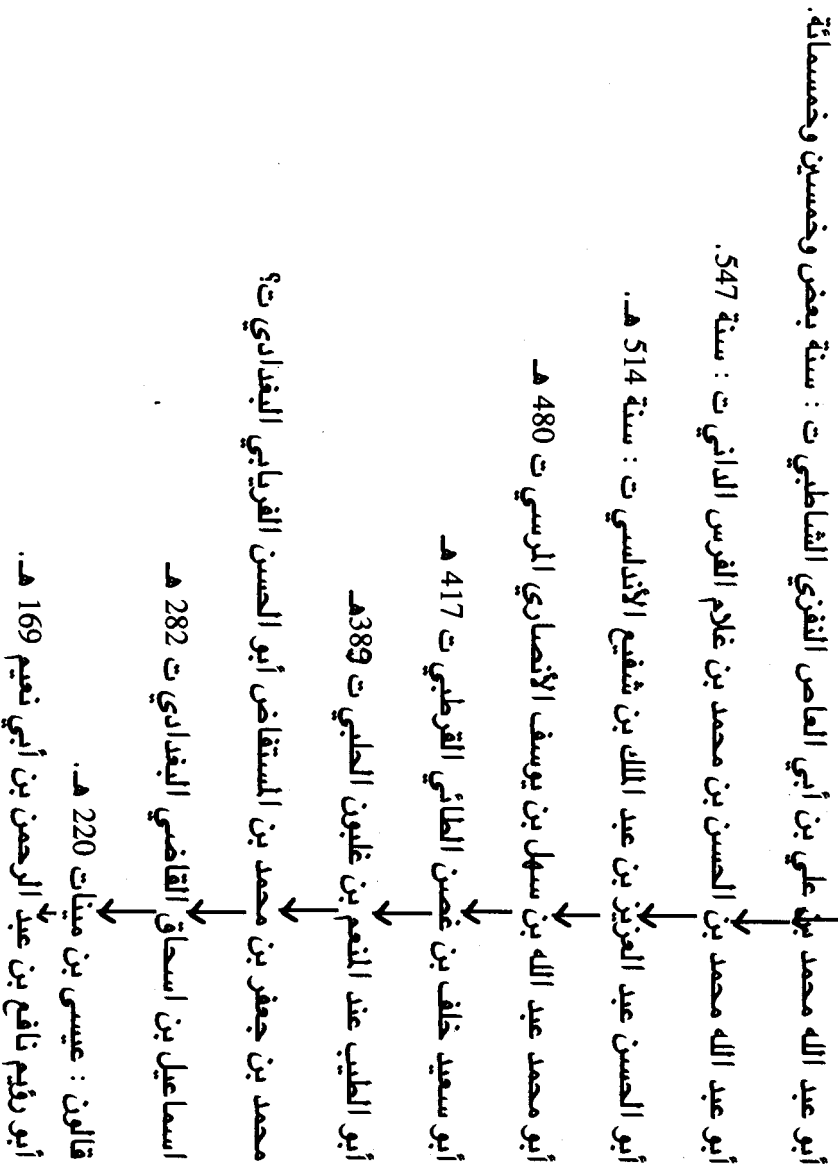 أبو عبد الله محمد بن علي بن أبي العاص النفزي الشاطبي ت : سنة بعض وخمسين وخمسمائة.
أبو عبد الله محمد بن الحسن بن محمد بن غلام الفرس الداني ت : سنة 547.
أبو الحسن عبد العزيز بن عبد الملك بن شفيع الأندلسي ت : سنة 514 هـ.
أبو محمد عبد الله بن سهل بن يوسف الأنصاري المرسي ت 480 هـ
أبو سعيد خلف بن غصن الطائي القرطبي ت 417 هـ
أبو الطيب عند المنعم بن غلبون الحلبي ت 389هـ
محمد بن جعفر بن محمد بن المستفاض أبو الحسن الفريابي البغدادي ت؟
اسماعيل بن اسحاق القاضي البغدادي ت 282 هـ
قالون : عيسى بن مينات 220 هـ.
أبو رؤيم نافع بن عبد الرحمن بن أبي نعيم 169 هـ.